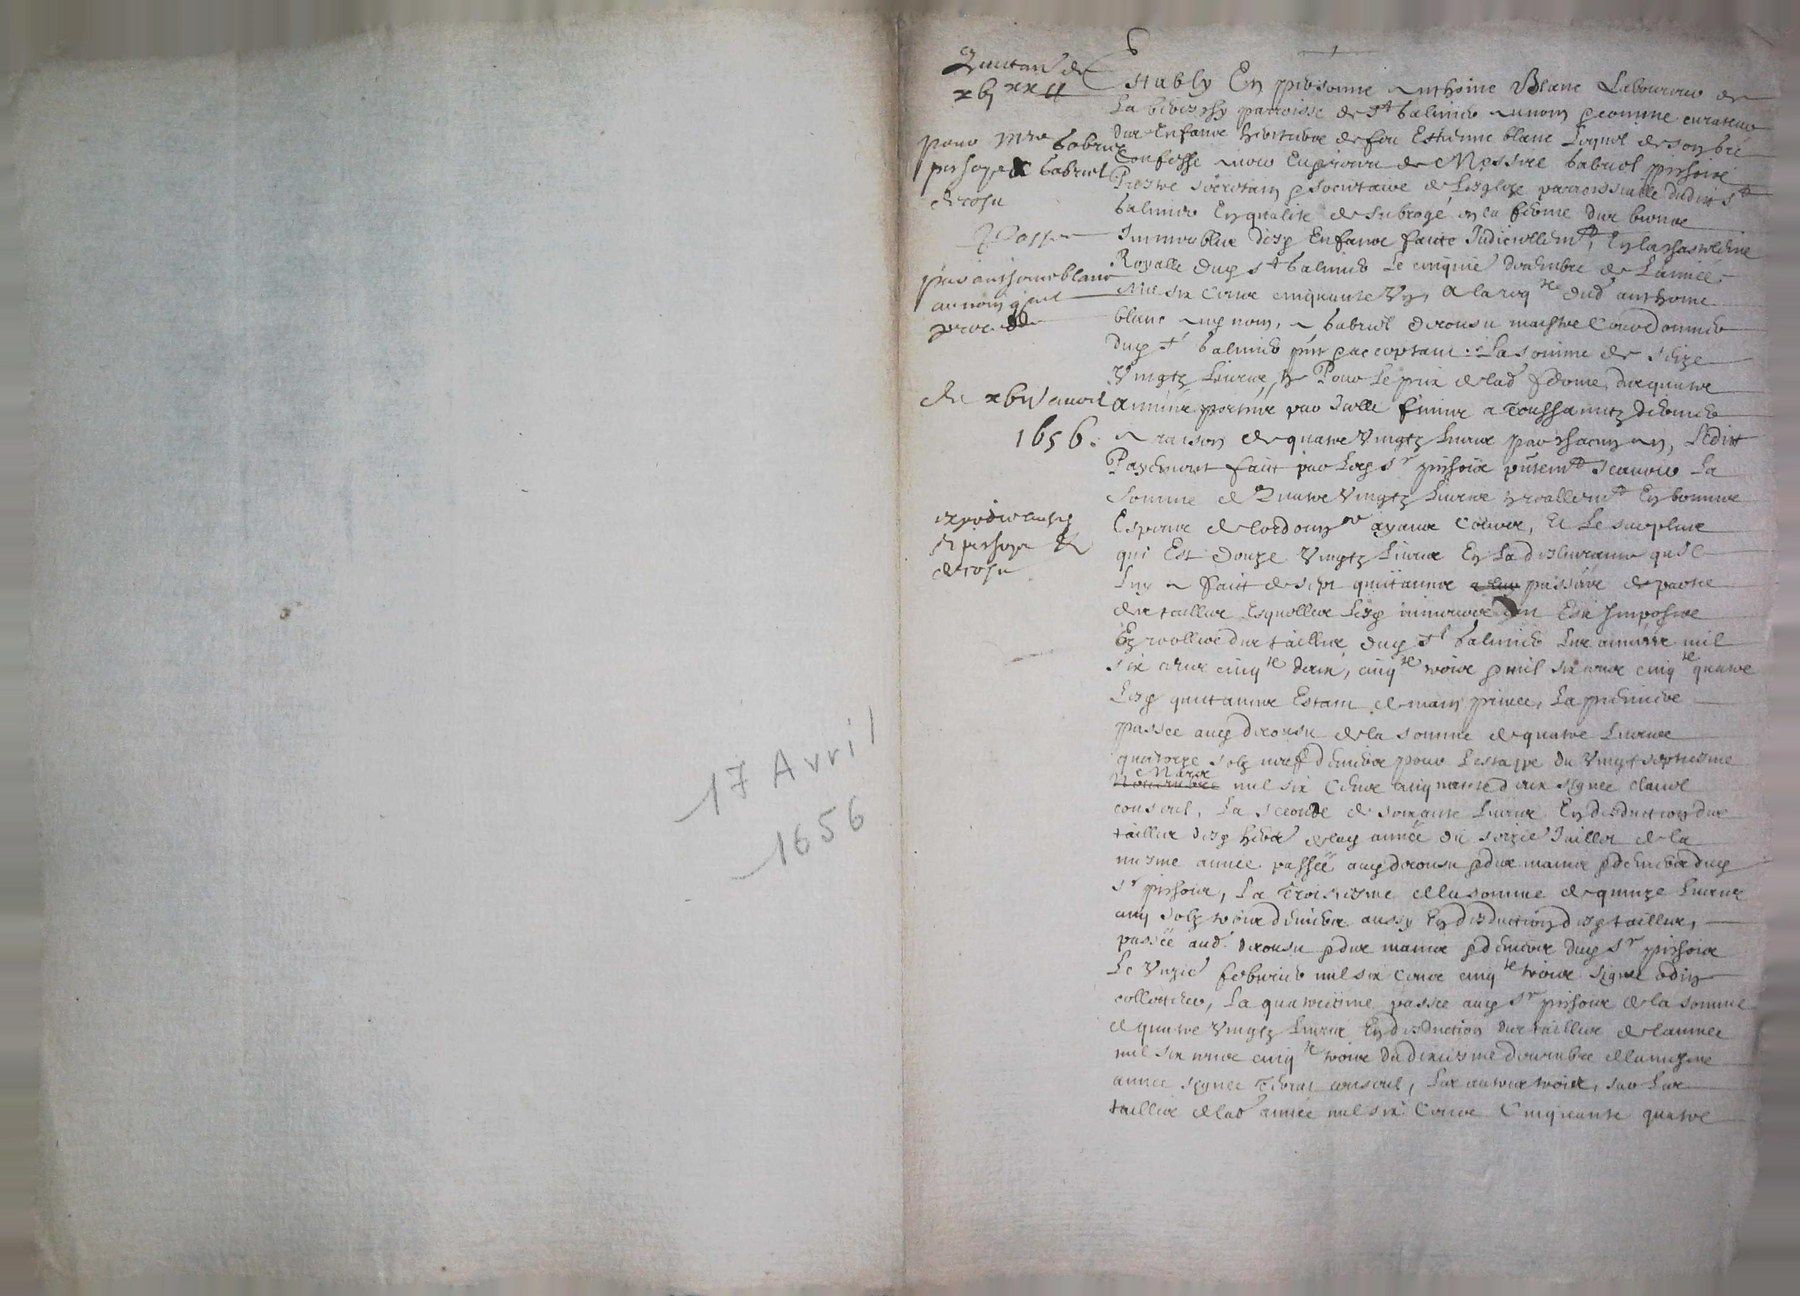 17 Avril
1656
Quittance de
xvj xx ll
pour Mre Gabriel
pinhoye & Gabriel
derosu
Passe
par anthoine blanc
au nom q
procede
du xvij avril
1656.
expedie ausd
pinhoye &
derosu
Estably En personne Anthoine Blanc Laboureur de
la paroisse de St Galmier au nom & comme curateur
des Enfans heritiers de feu Estienne blanc Lequel de son gré
Confesse avoir Eu & receu de Messire Gabriel pinhoie
Prestre secretain & societaire de Lesglize parroissialle dudit St
Galmier En qualité de subrogé en la ferme des biens
Immeubles desd Enfans faite Judiciellemt, En la chastelenie
Royalle dud St Galmier Le cinquie decembre de Lannee
Mil six Cens cinquante Ung, A la reqte dud anthoine
blanc aud nom, a Gabriel derousu maistre Cordonnier
dud St Galmier pnt & acceptant. La somme de seize
Vingtz Livres, Pour Le prix de lad ferme, des quatre
années portées par Icelle finies a Toussainctz dernier
a raison de quatre Vingtz Livres par chacun an, Ledit
Payement fait par Led Sr pinhoie presentemt scavoir La
somme de Quatre Vingtz Livres reallemt En bonnes
Especes de lordonnce ayans Cours, Et Le surplus
qui Est douze Vingtz Livres En La deslivrance quil
luy a fait de sept quittances passées de partie
des tailles Esquelles Lesd mineurs Este Imposes
Ez rolles des tailles dud St Galmier Les années mil
six cens cinqte deux, cinqte trois & mil six cens cinqte quatre
Lesd quittances Estant de main privee, La premiere
passee aud derousu de la somme de quatre Livres
quatorze solz neuf deniers pour Lestappe du Vingt septiesme
Mars mil six Cens cinquante deux signee Claude
consul, La seconde de soixante Livres En desduction des
tailles desd hers de lad année du seizie Juillet de la
mesme annee passée aud derousu & des mains & deniers dud
Sr pinhoie, La Troisiesme de la somme de quinze Livres
cinq solz trois deniers aussy En desduction desd tailles,
passée aud derousu & des mains & deniers dud Sr pinhoie
Le Unzie febvrier mil six Cens cinqte trois signee
collecteur, La quatriesme passee aud Sr pinhoie de la somme
de quatre Vingtz Livres En desduction des tailles de lannee
mil six cens cinqte trois du dixiesme decembre de la mesme
annee signee consul, Les autres trois, sur Les
tailles de lad année mil six Cens Cinquante quatre